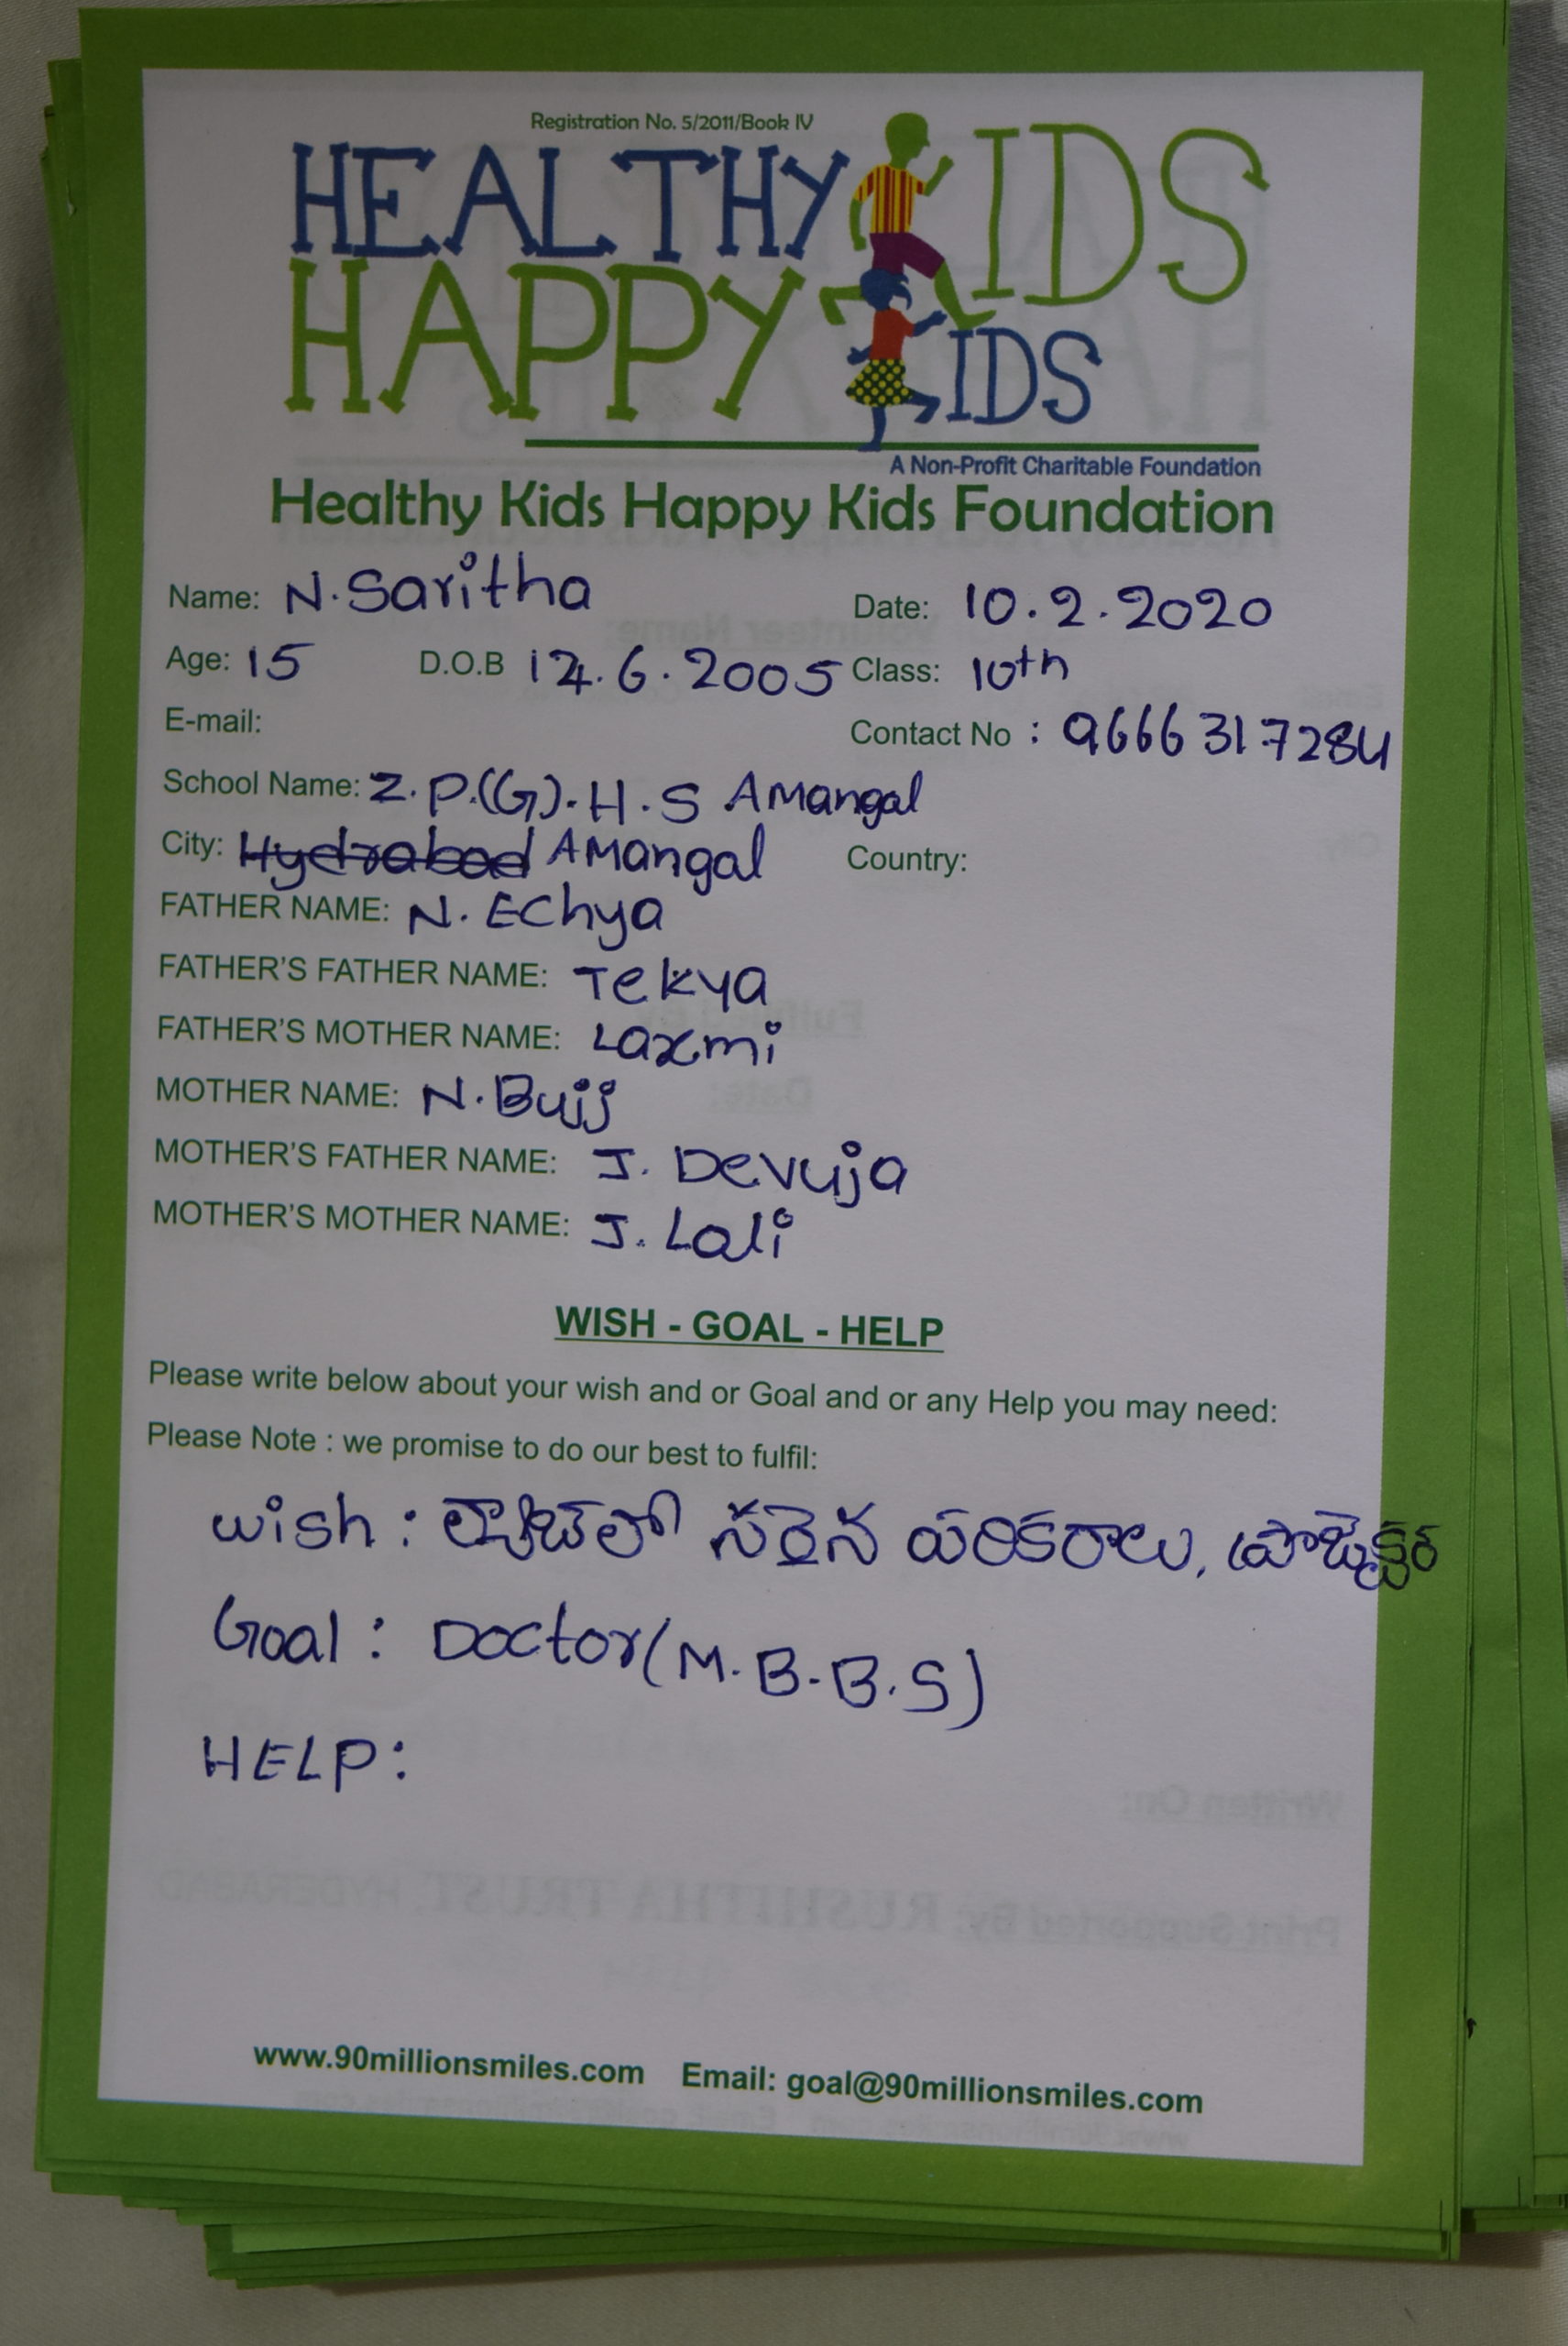 Registration No. 5/2011/Book IV
HEALTHY KIDS
HAPPY KIDS
A Non-Profit Charitable Foundation
Healthy Kids Happy Kids Foundation
Name: N. Saritha Date: 10.2.2020
Age: 15 D.O.B 14.6.2005 Class: 10th
E-mail: Contact No : 9666317284
School Name: Z.P.(G).H.S AMangal
City: Hydrabad AMangal Country:
FATHER NAME: N. EChya
FATHER'S FATHER NAME: Tekya
FATHER'S MOTHER NAME: Laxmi
MOTHER NAME: N. Bujj
MOTHER'S FATHER NAME: J. Devuja
MOTHER'S MOTHER NAME: J. Lali
WISH - GOAL - HELP
Please write below about your wish and or Goal and or any Help you may need:
Please Note : we promise to do our best to fulfil:
wish : ల్యాబ్‌లో సరైన పరికరాలు, ప్రొజెక్టర్
Goal : Doctor (M.B.B.S)
HELP :
www.90millionsmiles.com Email: goal@90millionsmiles.com